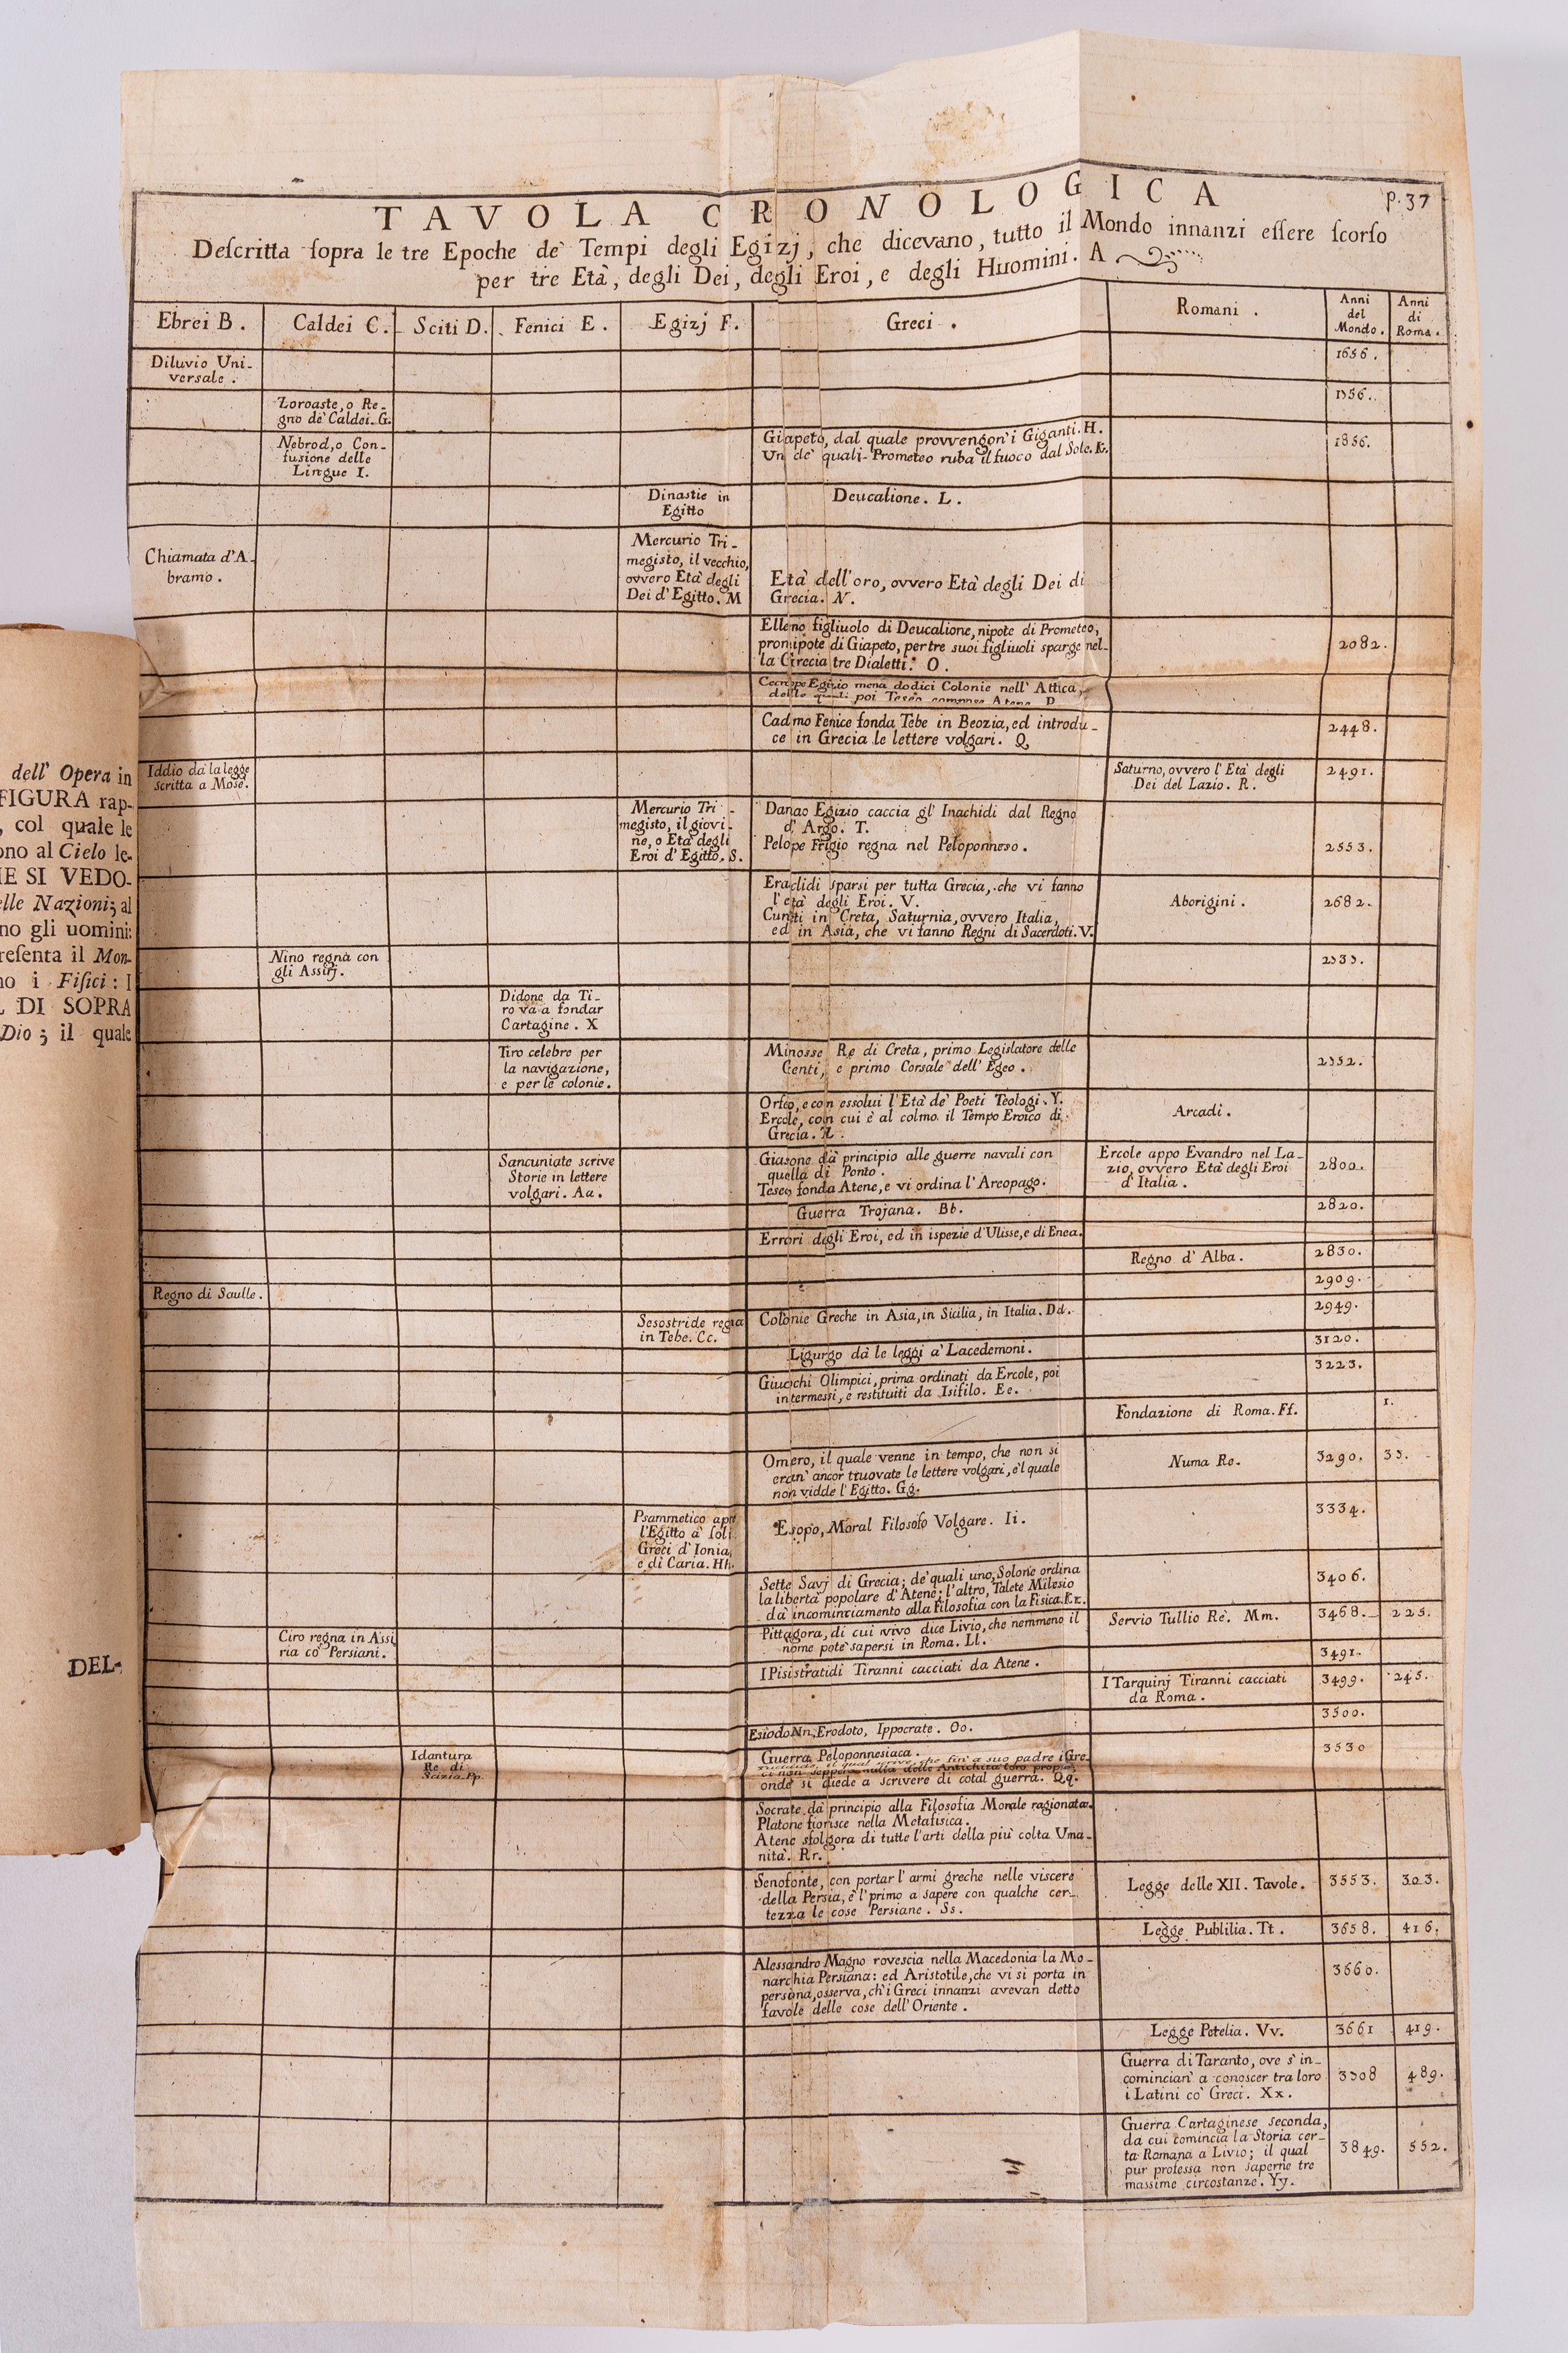 TAVOLA CRONOLOGICA
p. 37
Deſcritta ſopra le tre Epoche de' Tempi degli Egizj, che dicevano, tutto il Mondo innanzi eſſere ſcorſo
per tre Età, degli Dei, degli Eroi, e degli Huomini. A
Ebrei B.
Caldei C.
Sciti D.
Fenici E.
Egizj F.
Greci.
Romani.
Anni
del
Mondo.
Anni
di
Roma.
Diluvio Uni-
versale.
1656.
Zoroaste, o Re-
gno de' Caldei. G.
1756.
Nebrod, o Con-
fusione delle
Lingue I.
Giapeto, dal quale provvengon'i Giganti. H.
Un de' quali Prometeo ruba il fuoco dal Sole. K.
1856.
Dinastie in
Egitto
Deucalione. L.
Chiamata d'A-
bramo.
Mercurio Tri-
megisto, il vecchio,
ovvero Età degli
Dei d'Egitto. M
Età dell'oro, ovvero Età degli Dei di
Grecia. N.
Elleno figliuolo di Deucalione, nipote di Prometeo,
pronipote di Giapeto, per tre suoi figliuoli sparge nel-
la Grecia tre Dialetti. O.
2082.
Cecrope Egizio mena dodici Colonie nell'Attica,
delle quali poi Teseo compone Atene. P.
Cadmo Fenice fonda Tebe in Beozia, ed introdu-
ce in Grecia le lettere volgari. Q
2448.
Iddio dà la legge
scritta a Mosè.
Saturno, ovvero l'Età degli
Dei del Lazio. R.
2491.
Mercurio Tri-
megisto, il giovi-
ne, o Età degli
Eroi d'Egitto. S.
Danao Egizio caccia gl'Inachidi dal Regno
d'Argo. T.
Pelope Frigio regna nel Peloponneso.
2553.
Eraclidi sparsi per tutta Grecia, che vi fanno
l'età degli Eroi. V.
Cureti in Creta, Saturnia, ovvero Italia,
ed in Asia, che vi fanno Regni di Sacerdoti. V.
Aborigini.
2682.
Nino regna con
gli Assirj.
2737.
Didone da Ti-
ro va a fondar
Cartagine. X
Tiro celebre per
la navigazione,
e per le colonie.
Minosse Re di Creta, primo Legislatore delle
Genti, e primo Corsale dell'Egeo.
2752.
Orfeo, e con essolui l'Età de' Poeti Teologi. Y.
Ercole, con cui è al colmo il Tempo Eroico di
Grecia. Z.
Arcadi.
Sancuniate scrive
Storie in lettere
volgari. Aa.
Giasone dà principio alle guerre navali con
quella di Ponto.
Teseo fonda Atene, e vi ordina l'Areopago.
Ercole appo Evandro nel La-
zio, ovvero Età degli Eroi
d'Italia.
2800.
Guerra Trojana. Bb.
2820.
Errori degli Eroi, ed in ispezie d'Ulisse, e di Enea.
Regno d'Alba.
2830.
Regno di Saulle.
2909.
Sesostride regna
in Tebe. Cc.
Colonie Greche in Asia, in Sicilia, in Italia. Dd.
2949.
Ligurgo dà le leggi a' Lacedemoni.
3120.
Giuochi Olimpici, prima ordinati da Ercole, poi
intermessi, e restituiti da Isifilo. Ee.
3223.
Fondazione di Roma. Ff.
1.
Omero, il quale venne in tempo, che non si
eran' ancor truovate le lettere volgari, e'l quale
non vidde l'Egitto. Gg.
Numa Re.
3290.
37.
Psammetico apre
l'Egitto a' soli
Greci d'Ionia,
e di Caria. Hh.
Esopo, Moral Filosofo Volgare. Ii.
3334.
Sette Savj di Grecia; de' quali uno, Solone ordina
la libertà popolare d'Atene; l'altro, Talete Milesio
dà incominciamento alla Filosofia con la Fisica. Kk.
3406.
Ciro regna in Assi
ria co' Persiani.
Pittagora, di cui vivo dice Livio, che nemmeno il
nome potè sapersi in Roma. Ll.
Servio Tullio Re. Mm.
3468.
225.
I Pisistratidi Tiranni cacciati da Atene.
3491.
I Tarquinj Tiranni cacciati
da Roma.
3499.
245.
Esiodo Nn, Erodoto, Ippocrate. Oo.
3500.
Idantura
Re di
Scizia. Pp.
Guerra Peloponnesiaca.
Tucidide, il qual scrive, che fin' a suo padre i Gre-
ci non seppero nulla delle Antichità loro proprie,
onde si diede a scrivere di cotal guerra. Qq.
3530
Socrate dà principio alla Filosofia Morale ragionata.
Platone fiorisce nella Metafisica.
Atene sfolgora di tutte l'arti della più colta Uma-
nità. Rr.
Senofonte, con portar l'armi greche nelle viscere
della Persia, è'l primo a sapere con qualche cer-
tezza le cose Persiane. Ss.
Legge delle XII. Tavole.
3553.
303.
Legge Publilia. Tt.
3658.
416.
Alessandro Magno rovescia nella Macedonia la Mo-
narchia Persiana: ed Aristotile, che vi si porta in
persona, osserva, ch'i Greci innanzi avevan detto
favole delle cose dell'Oriente.
3660.
Legge Petelia. Vv.
3661
419.
Guerra di Taranto, ove s'in-
comincian' a conoscer tra loro
i Latini co' Greci. Xx.
3708
489.
Guerra Cartaginese seconda,
da cui comincia la Storia cer-
ta Romana a Livio; il qual
pur professa non saperne tre
massime circostanze. Yy.
3849.
552.
dell' Opera in
FIGURA rap-
, col quale le
ono al Cielo le-
IE SI VEDO-
elle Nazioni; al
no gli uomini:
reſenta il Mon-
no i Fiſici: I
L DI SOPRA
Dio; il quale
DEL-